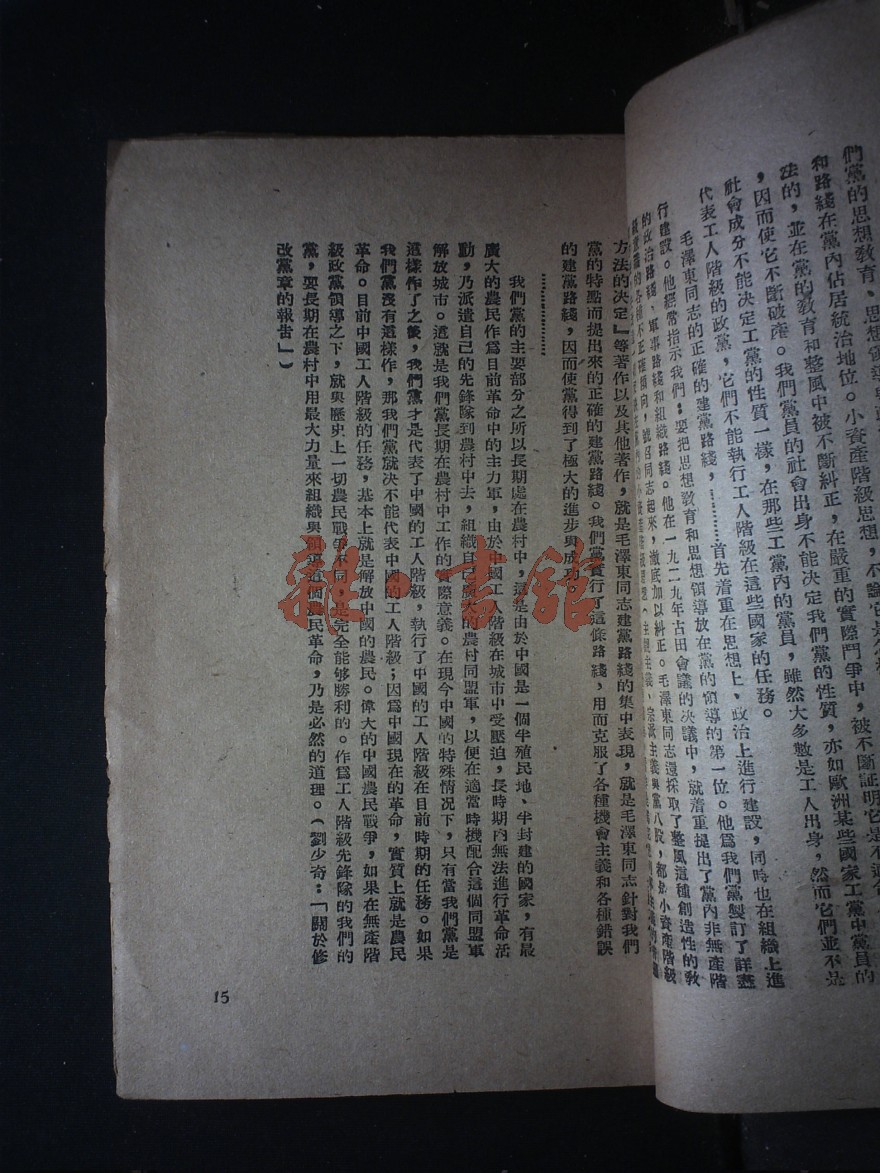 們黨的思想教育、思想領導
和路綫在黨內佔居統治地位。小資產階級思想，不論它是
法的，並在黨的教育和整風中被不斷糾正，在嚴重的實際鬥爭中，被不斷証明它是不適合
，因而使它不斷破產。我們黨員的社會出身不能決定我們黨的性質，亦如歐洲某些國家工黨中黨員的
社會成分不能決定工黨的性質一樣，在那些工黨內的黨員，雖然大多數是工人出身，然而它們並不是
代表工人階級的政黨，它們不能執行工人階級在這些國家的任務。
毛澤東同志的正確的建黨路綫，…………首先着重在思想上、政治上進行建設，同時也在組織上進
行建設。他經常指示我們：要把思想教育和思想領導放在黨的領導的第一位。他爲我們黨製訂了詳盡
的政治路綫、軍事路綫和組織路綫。他在一九二九年古田會議的決議中，就着重提出了黨內非無產階
級意識的各種不正確傾向，號召同志起來，澈底加以糾正。毛澤東同志還採取了整風這種創造性的教
方法的決定』等著作以及其他著作，就是毛澤東同志建黨路綫的集中表現，就是毛澤東同志針對我們
黨的特點而提出來的正確的建黨路綫。我們黨實行了這條路綫，用而克服了各種機會主義和各種錯誤
的建黨路綫，因而使黨得到了極大的進步與成功。
…………
我們黨的主要部分之所以長期處在農村中，這是由於中國是一個半殖民地、半封建的國家，有最
廣大的農民作爲目前革命中的主力軍，由於中國工人階級在城市中受壓迫，長時期內無法進行革命活
動，乃派遣自己的先鋒隊到農村中去，組織自己廣大的農村同盟軍，以便在適當時機配合這個同盟軍
解放城市。這就是我們黨長期在農村中工作的實際意義。在現今中國的特殊情况下，只有當我們黨是
這樣作了之後，我們黨才是代表了中國的工人階級，執行了中國的工人階級在目前時期的任務。如果
我們黨沒有這樣作，那我們黨就決不能代表中國的工人階級；因爲中國現在的革命，實質上就是農民
革命。目前中國工人階級的任務，基本上就是解放中國的農民。偉大的中國農民戰爭，如果在無產階
級政黨領導之下，就與歷史上一切農民戰爭不同，是完全能够勝利的。作爲工人階級先鋒隊的我們的
黨，要長期在農村中用最大力量來組織與領導這個農民革命，乃是必然的道理。（劉少奇：「關於修
改黨章的報告」）
15
雜書館